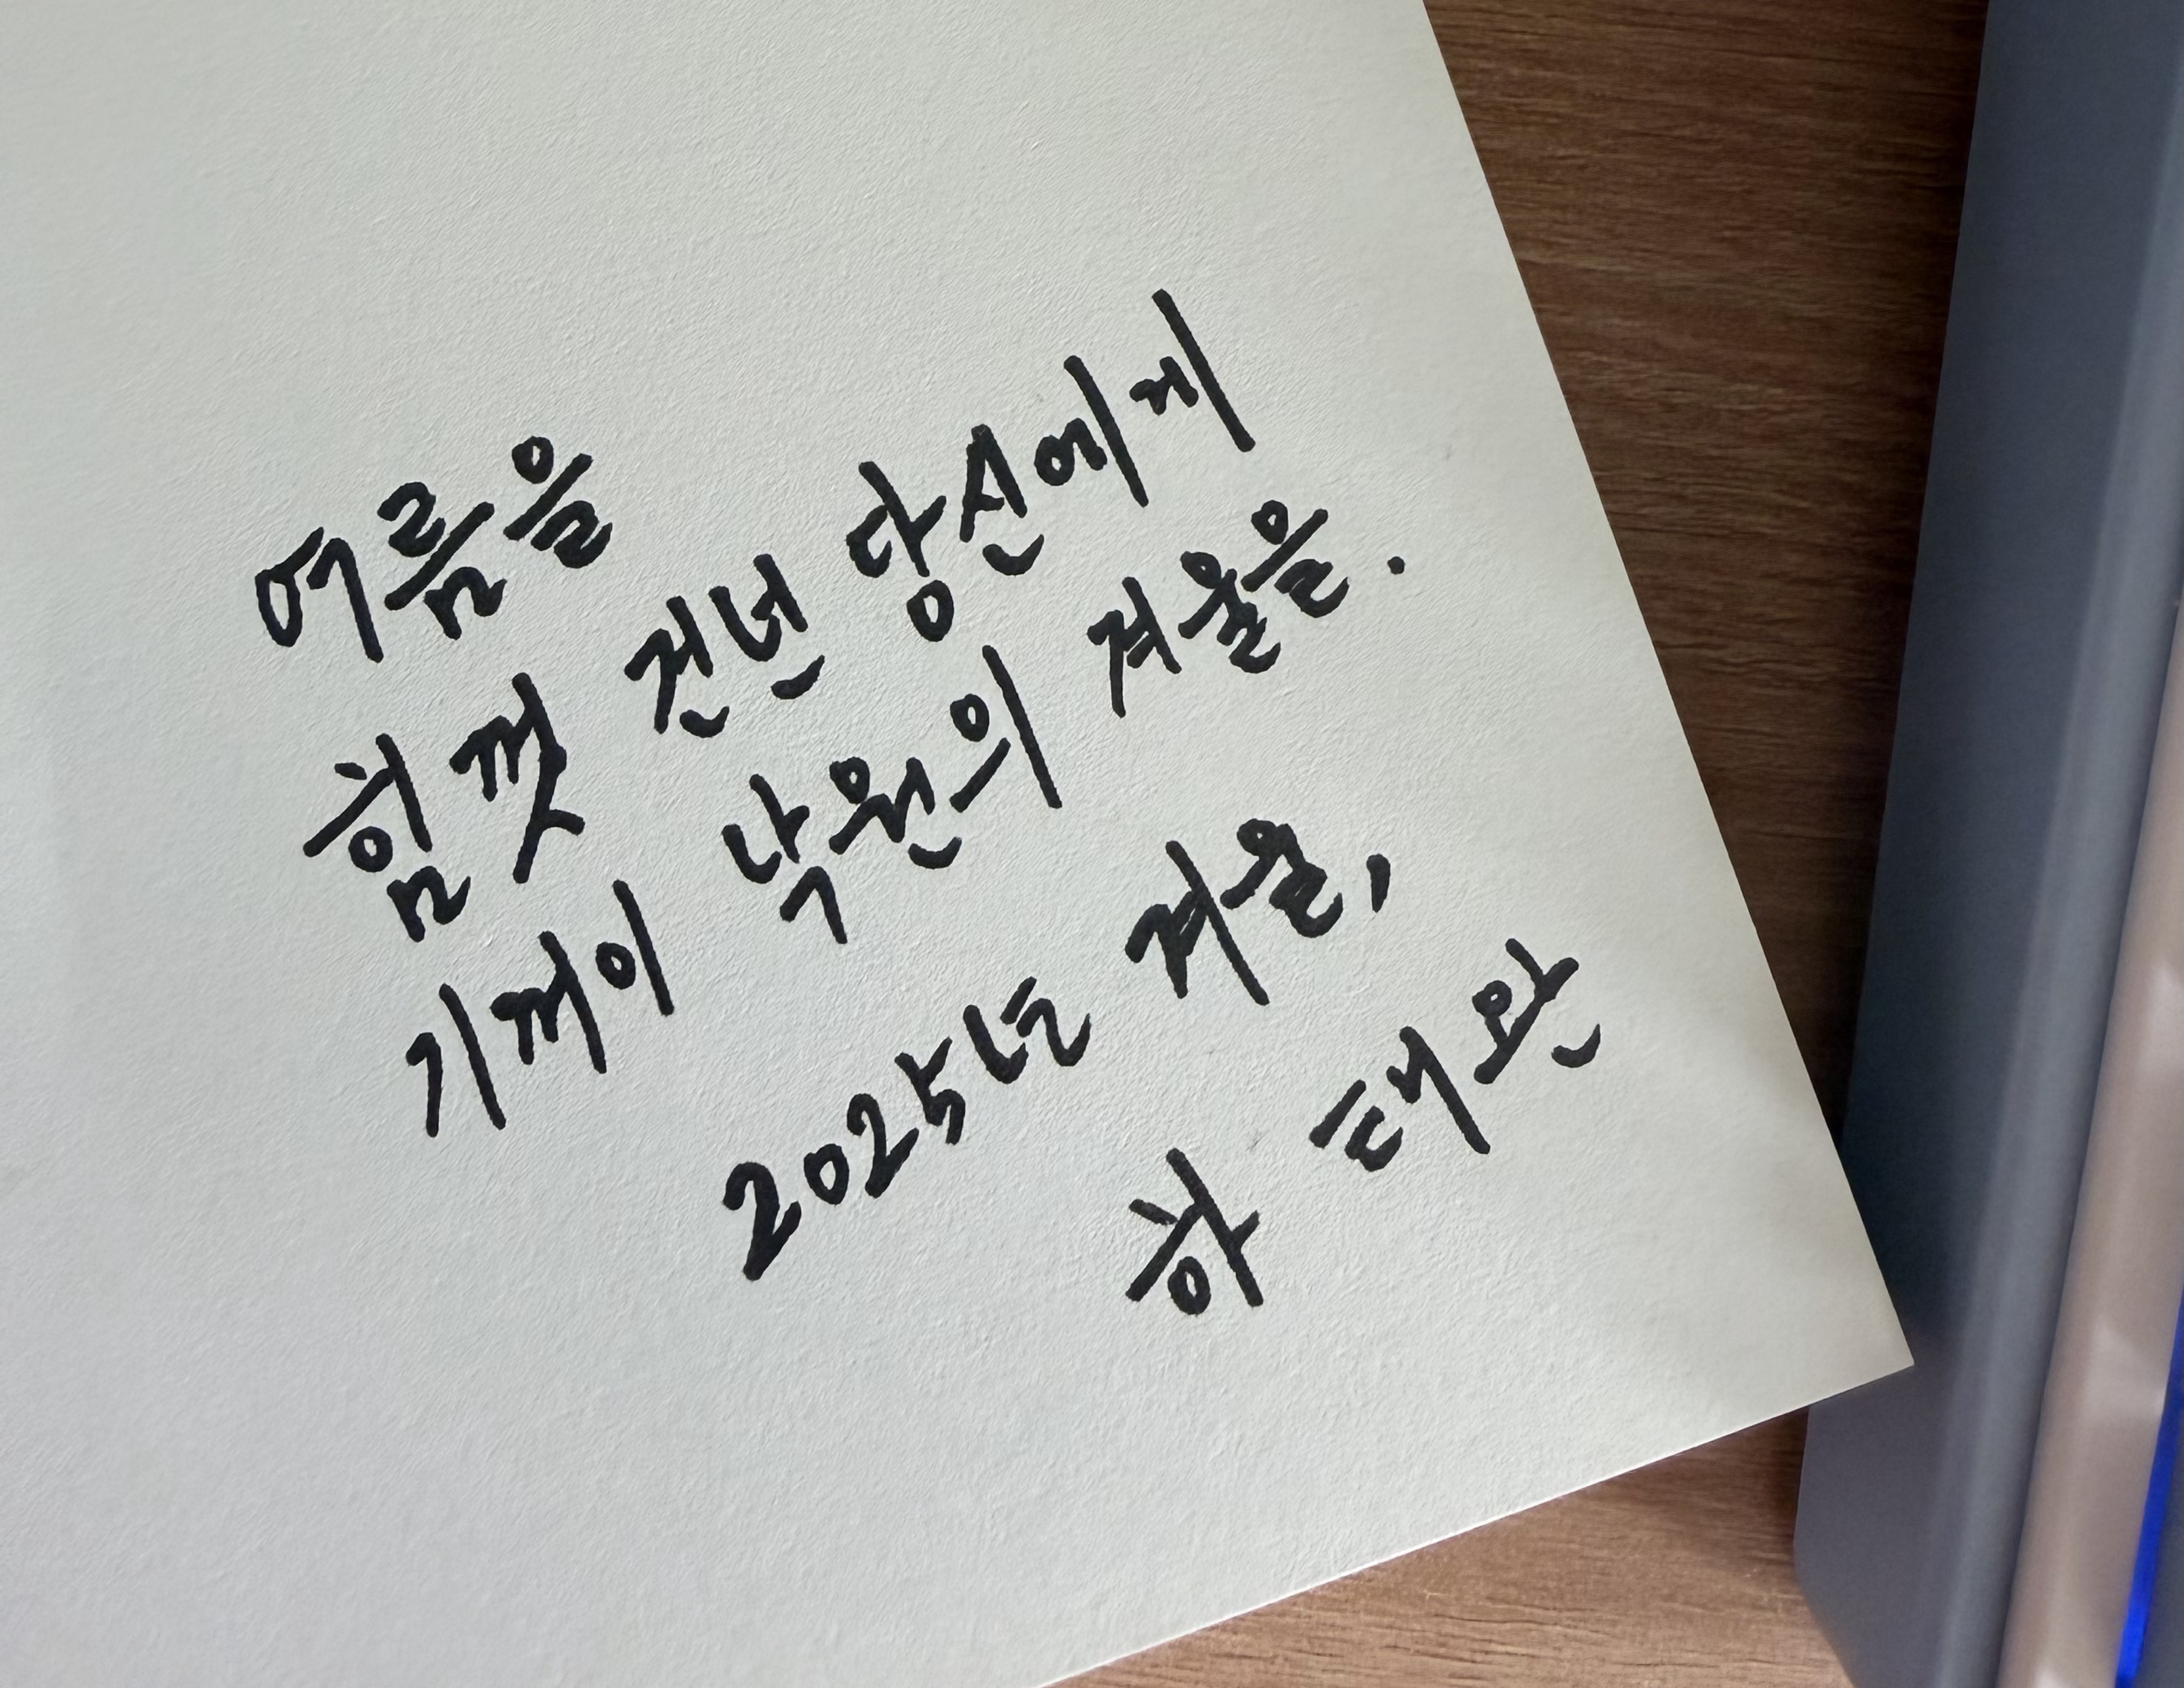 여름을
힘껏 건넌 당신에게
기꺼이 낙원의 겨울을.
2025년 겨울,
하 태완